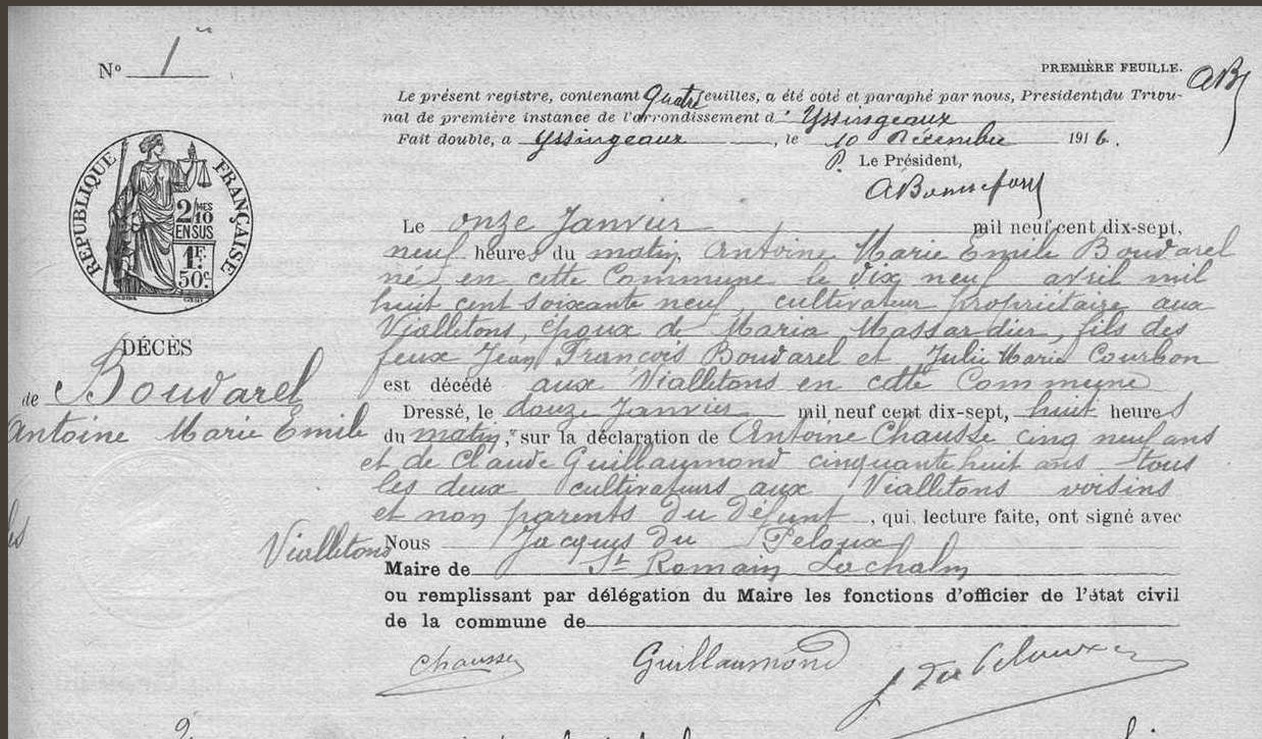 N° 1
PREMIÈRE FEUILLE. AB
Le présent registre, contenant quatre feuilles, a été côté et paraphé par nous, Président du Tribu-
nal de première instance de l'arrondissement d' Yssingeaux
Fait double, a Yssingeaux, le 10 Décembre 1916.
P. Le Président,
RÉPUBLIQUE FRANÇAISE
2/10MES
EN SUS
1F.
50c.
Le onze Janvier mil neuf cent dix-sept,
neuf heures du matin, Antoine Marie Emile Boudarel
né en cette Commune le dix neuf avril mil
huit cent soixante neuf, cultivateur propriétaire aux
Vialletons, époux de Maria Massardier, fils des
feux Jean François Boudarel et Julie Marie Courbon
est décédé aux Vialletons en cette Commune
DÉCÈS
de Boudarel
Antoine Marie Emile
Vialletons
Dressé, le douze Janvier mil neuf cent dix-sept, huit heures
du matin, sur la déclaration de Antoine Chausse cinq neuf ans
et de Claude Guillaumond cinquante huit ans tous
les deux cultivateurs aux Vialletons voisins
et non parents du défunt, qui, lecture faite, ont signé avec
Nous Jacques du Peloux
Maire de St Romain Lachalm
ou remplissant par délégation du Maire les fonctions d'officier de l'état civil
de la commune de
Chausse Guillaumond J du Peloux
2